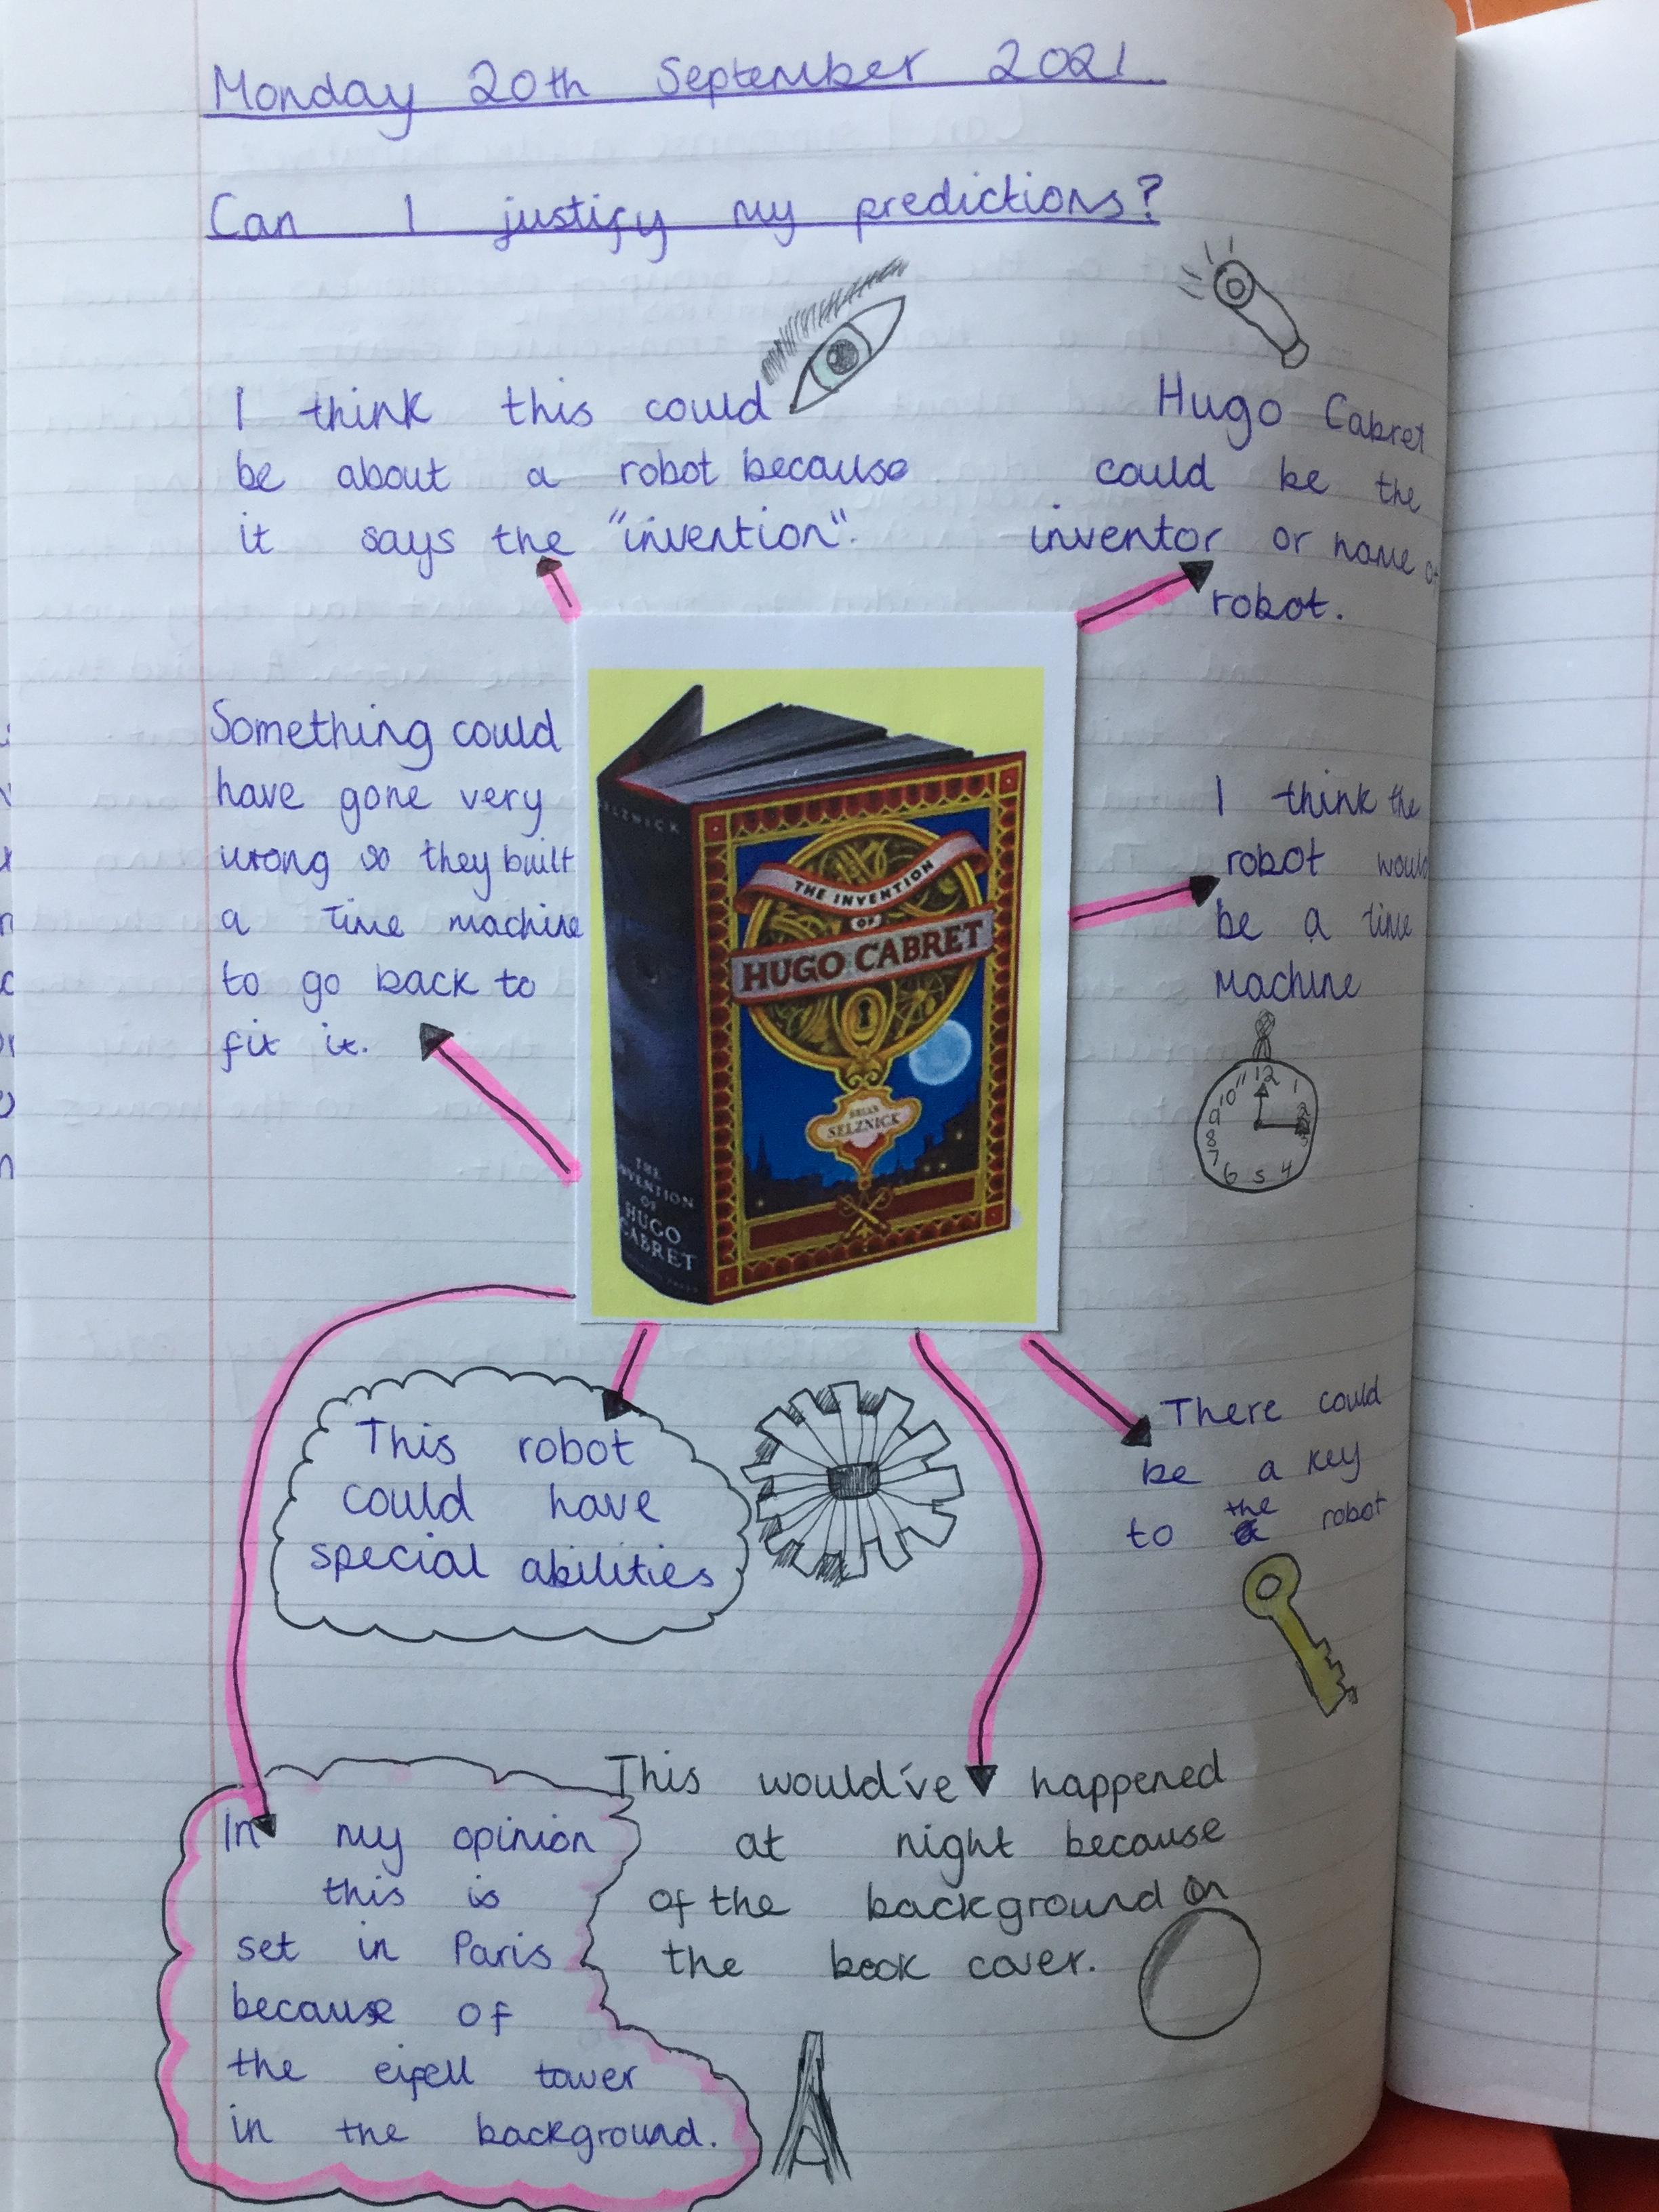 Monday 20th September 2021
Can I justify my predictions?
I think this could
be about a robot because
it says the "invention".
Hugo Cabret
could be the
inventor or name of
robot.
Something could
have gone very
wrong so they built
a time machine
to go back to
fix it.
SELZNICK
THE INVENTION
OF
HUGO CABRET
BRIAN
SELZNICK
THE
INVENTION
OF
HUGO
CABRET
I think the
robot would
be a time
machine
12
1
2
3
4
5
6
7
8
9
10
11
This robot
could have
special abilities
There could
be a key
to the robot
This would've happened
at night because
of the background on
the book cover.
In my opinion
this is
set in Paris
because of
the eifell tower
in the background.